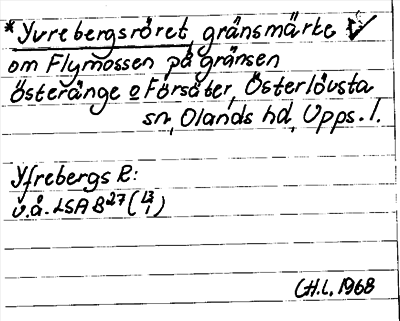 *Yvrebergsröret, gränsmärke V
om Flymossen på gränsen
Österänge o Försäter, Österlövsta
sn, Olands hd, Upps. l.
Yfrebergs R:
u.å. LSA B27 (13/1)
C.H.L. 1968